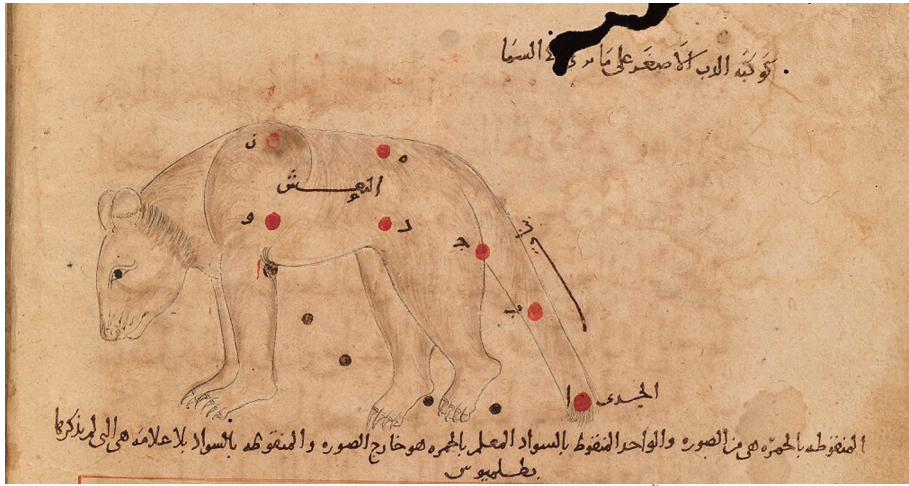 كوكبه الدب الاصغر على ما يرى السما
ز
ه
النعش
و
د
ج
ب
الجدى ا
المنقوطه بالحمره هى من الصوره والواحد المنقوط بالسواد المعلم بالحمره هو خارج الصوره والمنقوطه بالسواد بلا علامه هى التى لم يذكرها
بطلميوس